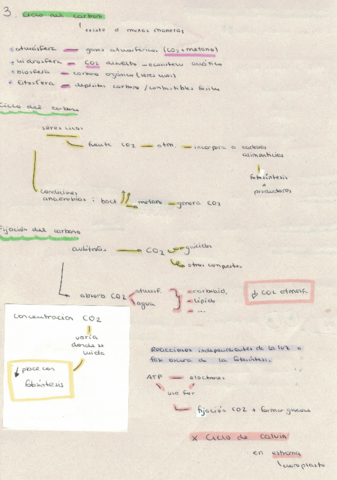 3. Ciclo del carbono
existe de muchas maneras
atmósfera — gases atmosféricos (CO2 + metano)
Hidrosfera — CO2 disuelto — ecosistema acuático
Biosfera — carbono orgánico (seres vivos)
Litosfera — depósitos carbono / combustibles fósiles
Ciclo del carbono
seres vivos
fuente CO2 — atm — incorpora a cadenas
alimenticias
fotosíntesis
productores
condiciones
anaerobias: bact — metano — genera CO2
Fijación del carbono
autótrofos — CO2
glúcidos
otros compuestos
absorbe CO2
atmosf.
agua
carbohid.
lípidos
...
↓ CO2 atmosf.
concentración CO2
varía
donde se
mide
↓ pase con
fotosíntesis
Reacciones independientes de la luz o
fase oscura de la fotosíntesis.
ATP — electrones
fijación CO2 + formar glucosa
* Ciclo de Calvin
en estroma
cloroplasto